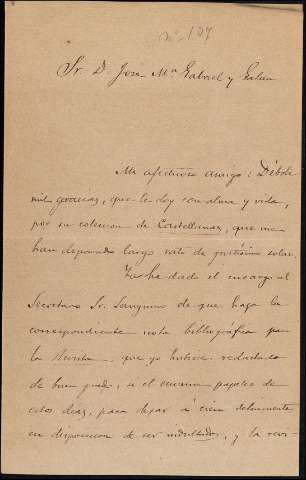 Nº. 107
Sr. D. José Mª Gabriel y Galán
Mi afectuoso amigo: Débole
mil gracias, que le doy con alma y vida,
por su coleccion de Castellanas, que me
han deparado largo rato de gratísimo solaz.
Ya he dado el encargo al
Secretario Sr. Sanguino de que haga la
correspondiente nota bibliográfica para
la Revista, que yo hubiera redactado
de buen grado, si el enorme papeleo de
estos días, para dejar á cien delincuentes
en disposicion de ser indultados, y la revi-